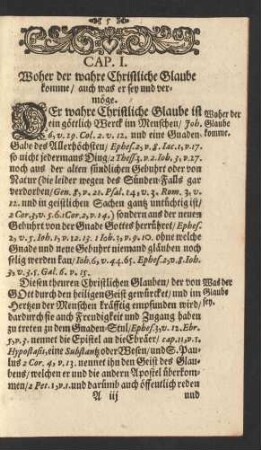 5
CAP. I.
Woher der wahre Christliche Glaube
komme / auch was er sey und ver-
möge.
DEr wahre Christliche Glaube ist
ein göttlich Werck im Menschen / Joh.
6, v. 29. Col. 2. v. 12. und eine Gnaden-
Gabe des Allerhöchsten / Ephes. 2, v. 8. Jac. 1, v. 17.
so nicht jedermans Ding / 2 Thess. 3, v. 2. Joh. 3, v. 27.
noch aus der alten sündlichen Gebuhrt oder von
Natur (die leider wegen des Sünden-Falls gar
verdorben / Gen. 8, v. 21. Psal. 14, v. 3. Rom. 3, v.
12. und in geistlichen Sachen gantz untüchtig ist /
2 Cor. 3, v. 5. 6. 1 Cor. 2, v. 14.) sondern aus der neuen
Gebuhrt von der Gnade Gottes herrühret / Ephes.
2, v. 5. Joh. 1, v. 12. 13. 1 Joh. 3, v. 9. 10. ohne welche
Gnade und neue Gebuhrt niemand glauben noch
selig werden kan / Joh. 6, v. 44. 65. Ephes. 2, v. 8. Joh.
3, v. 3. 5. Gal. 6. v. 15.
Woher der
Glaube
komme.
Diesen theuren Christlichen Glauben / der von
GOtt durch den heiligen Geist gewürcket / und im
Hertzen der Menschen kräfftig empfunden wird /
dardurch sie auch Freudigkeit und Zugang haben
zu treten zu dem Gnaden-Stul / Ephes. 3, v. 12. Ebr.
5, v. 3. nennet die Epistel an die Ebräer / cap. 11, v. 1.
Hypostasis, eine Substantz oder Wesen / und S. Pau-
lus 2 Cor. 4, v. 13. nennet ihn den Geist des Glau-
bens / welchen er und die andern Apostel überkom-
men / 2 Pet. 1, v. 1. und darümb auch öffentlich reden
Was der
Glaube
sey.
A iij
und